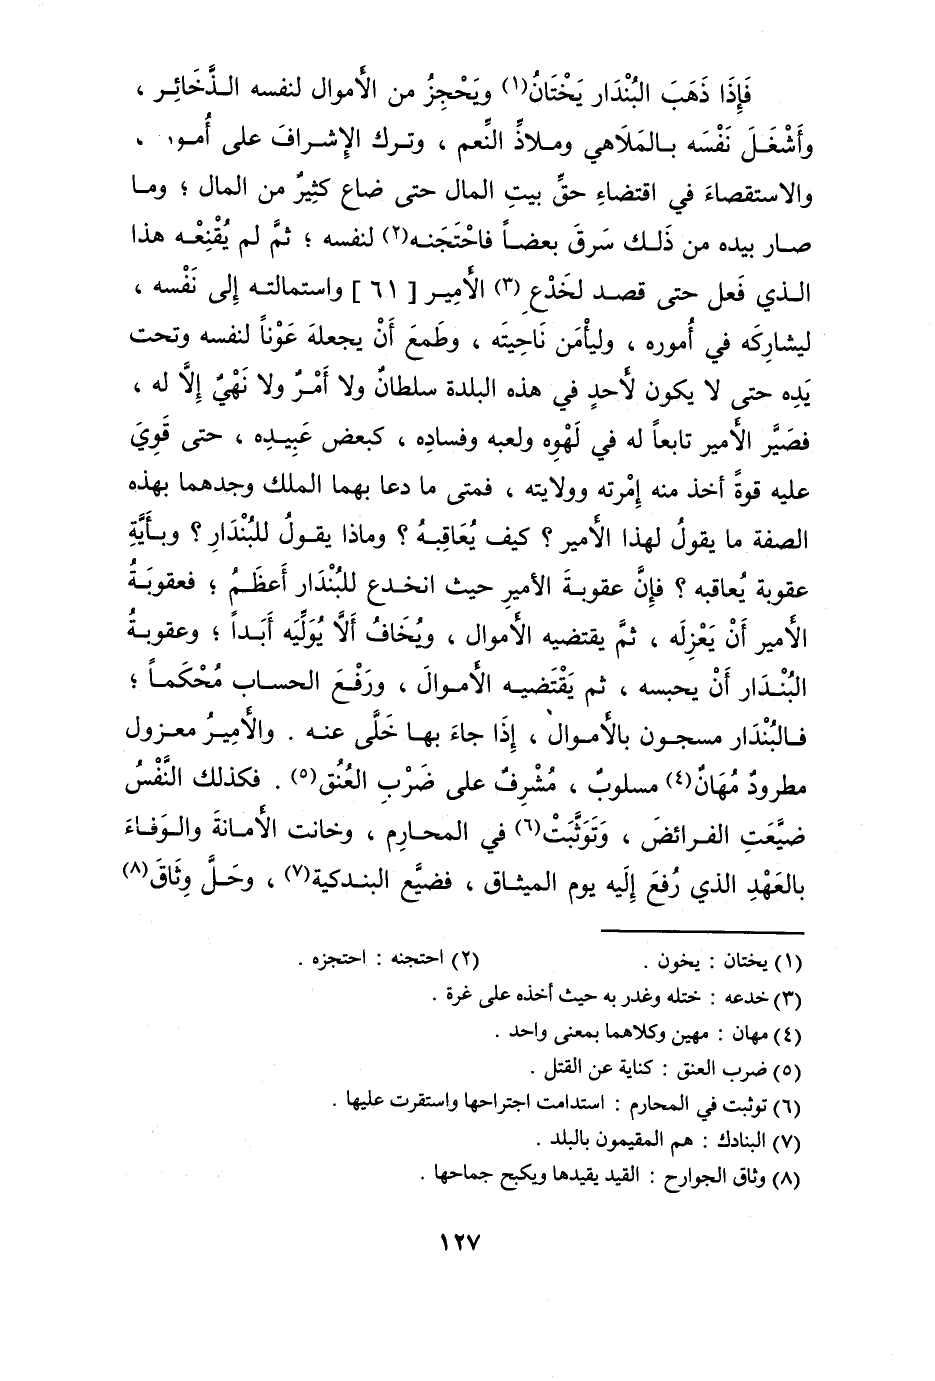 فَإِذَا ذَهَبَ البُنْدَار يَخْتَانُ(١) ويَحْجِزُ من الأَموال لنفسه الـذَّخَائِـر ،
وأَشْغَـلَ نَفْسَه بـالمَلَاهي ومـلاذِّ النِّعم ، وتـرك الإِشـرافَ على أُمـو
والاستقصاءَ في اقتضاءِ حقِّ بيتِ المال حتى ضاع كثيرٌ من المال ؛ ومـا
صـار بيده من ذَلـك سَرقَ بعضـاً فاحْتَجَنـه(٢) لنفسه ؛ ثمَّ لم يُقْنِعْـه هذا
الـذي فَعل حتى قصـد لخَدْعِ (٣) الأَمِيـر [ ٦١ ] واستمالتـه إِلى نَفْسه ،
ليشارِكَه في أُموره ، وليأْمَن نَاحِيتَه ، وطَمعَ أَنْ يجعلهَ عَوْناً لنفسه وتحت
يَدِه حتى لا يكون لأَحدٍ في هذه البلدة سلطانٌ ولا أَمْـرٌ ولا نَهْيٌ إِلَّا له ،
فصَيَّر الأَمير تابعاً له في لَهْوِه ولعبه وفسادِه ، كبعض عَبِيـدِه ، حتى قَوِيَ
عليه قوةً أخذ منه إِمْرته وولايته ، فمتى ما دعا بهما الملك وجدهما بهذه
الصفة ما يقولُ لهذا الأَمير ؟ كيف يُعَاقِبـهُ ؟ وماذا يقـولُ للبُنْدَارِ ؟ وبـأَيَّةِ
عقوبة يُعاقبه ؟ فإِنَّ عقوبةَ الأميرِ حيث انخـدع للبُنْدَار أَعظَـمُ ؛ فعقوبَـةُ
الأَمير أَنْ يَعْزِلَه ، ثمَّ يقتضيه الأَموال ، ويُخَافُ أَلَّا يُوَلِّيَه أَبَـداً ؛ وعقوبـةُ
البُنْـدَار أَنْ يحبسه ، ثم يَقْتَضيـه الأَمـوالَ ، ورَفْـعَ الحساب مُحْكَمـاً ؛
فـالبُنْدَار مسجـون بالأَمـوال ، إِذَا جاءَ بهـا خَلَّى عنـه . والأَمِيـرُ معـزول
مطرودٌ مُهَانٌ(٤) مسلوبٌ ، مُشْرِفٌ على ضَرْبِ العُنُق(٥) . فكذلك النَّفْسُ
ضيَّعَتِ الفـرائضَ ، وَتَوَثَّبَتْ(٦) في المحـارِم ، وخانت الأَمـانةَ والـوَفـاءَ
بالعَهْدِ الذي رُفعَ إِلَيه يوم الميثـاق ، فضيَّع البنـدكية(٧) ، وحَلَّ وِثَاقَ(٨)
(١) يختان : يخون .
(٢) احتجنه : احتجزه .
(٣) خدعه : ختله وغدر به حيث أخذه على غرة .
(٤) مهان : مهين وكلاهما بمعنى واحد .
(٥) ضرب العنق : كناية عن القتل .
(٦) توثبت في المحارم : استدامت اجتراحها واستقرت عليها .
(٧) البنادك : هم المقيمون بالبلد .
(٨) وثاق الجوارح : القيد يقيدها ويكبح جماحها .
١٢٧